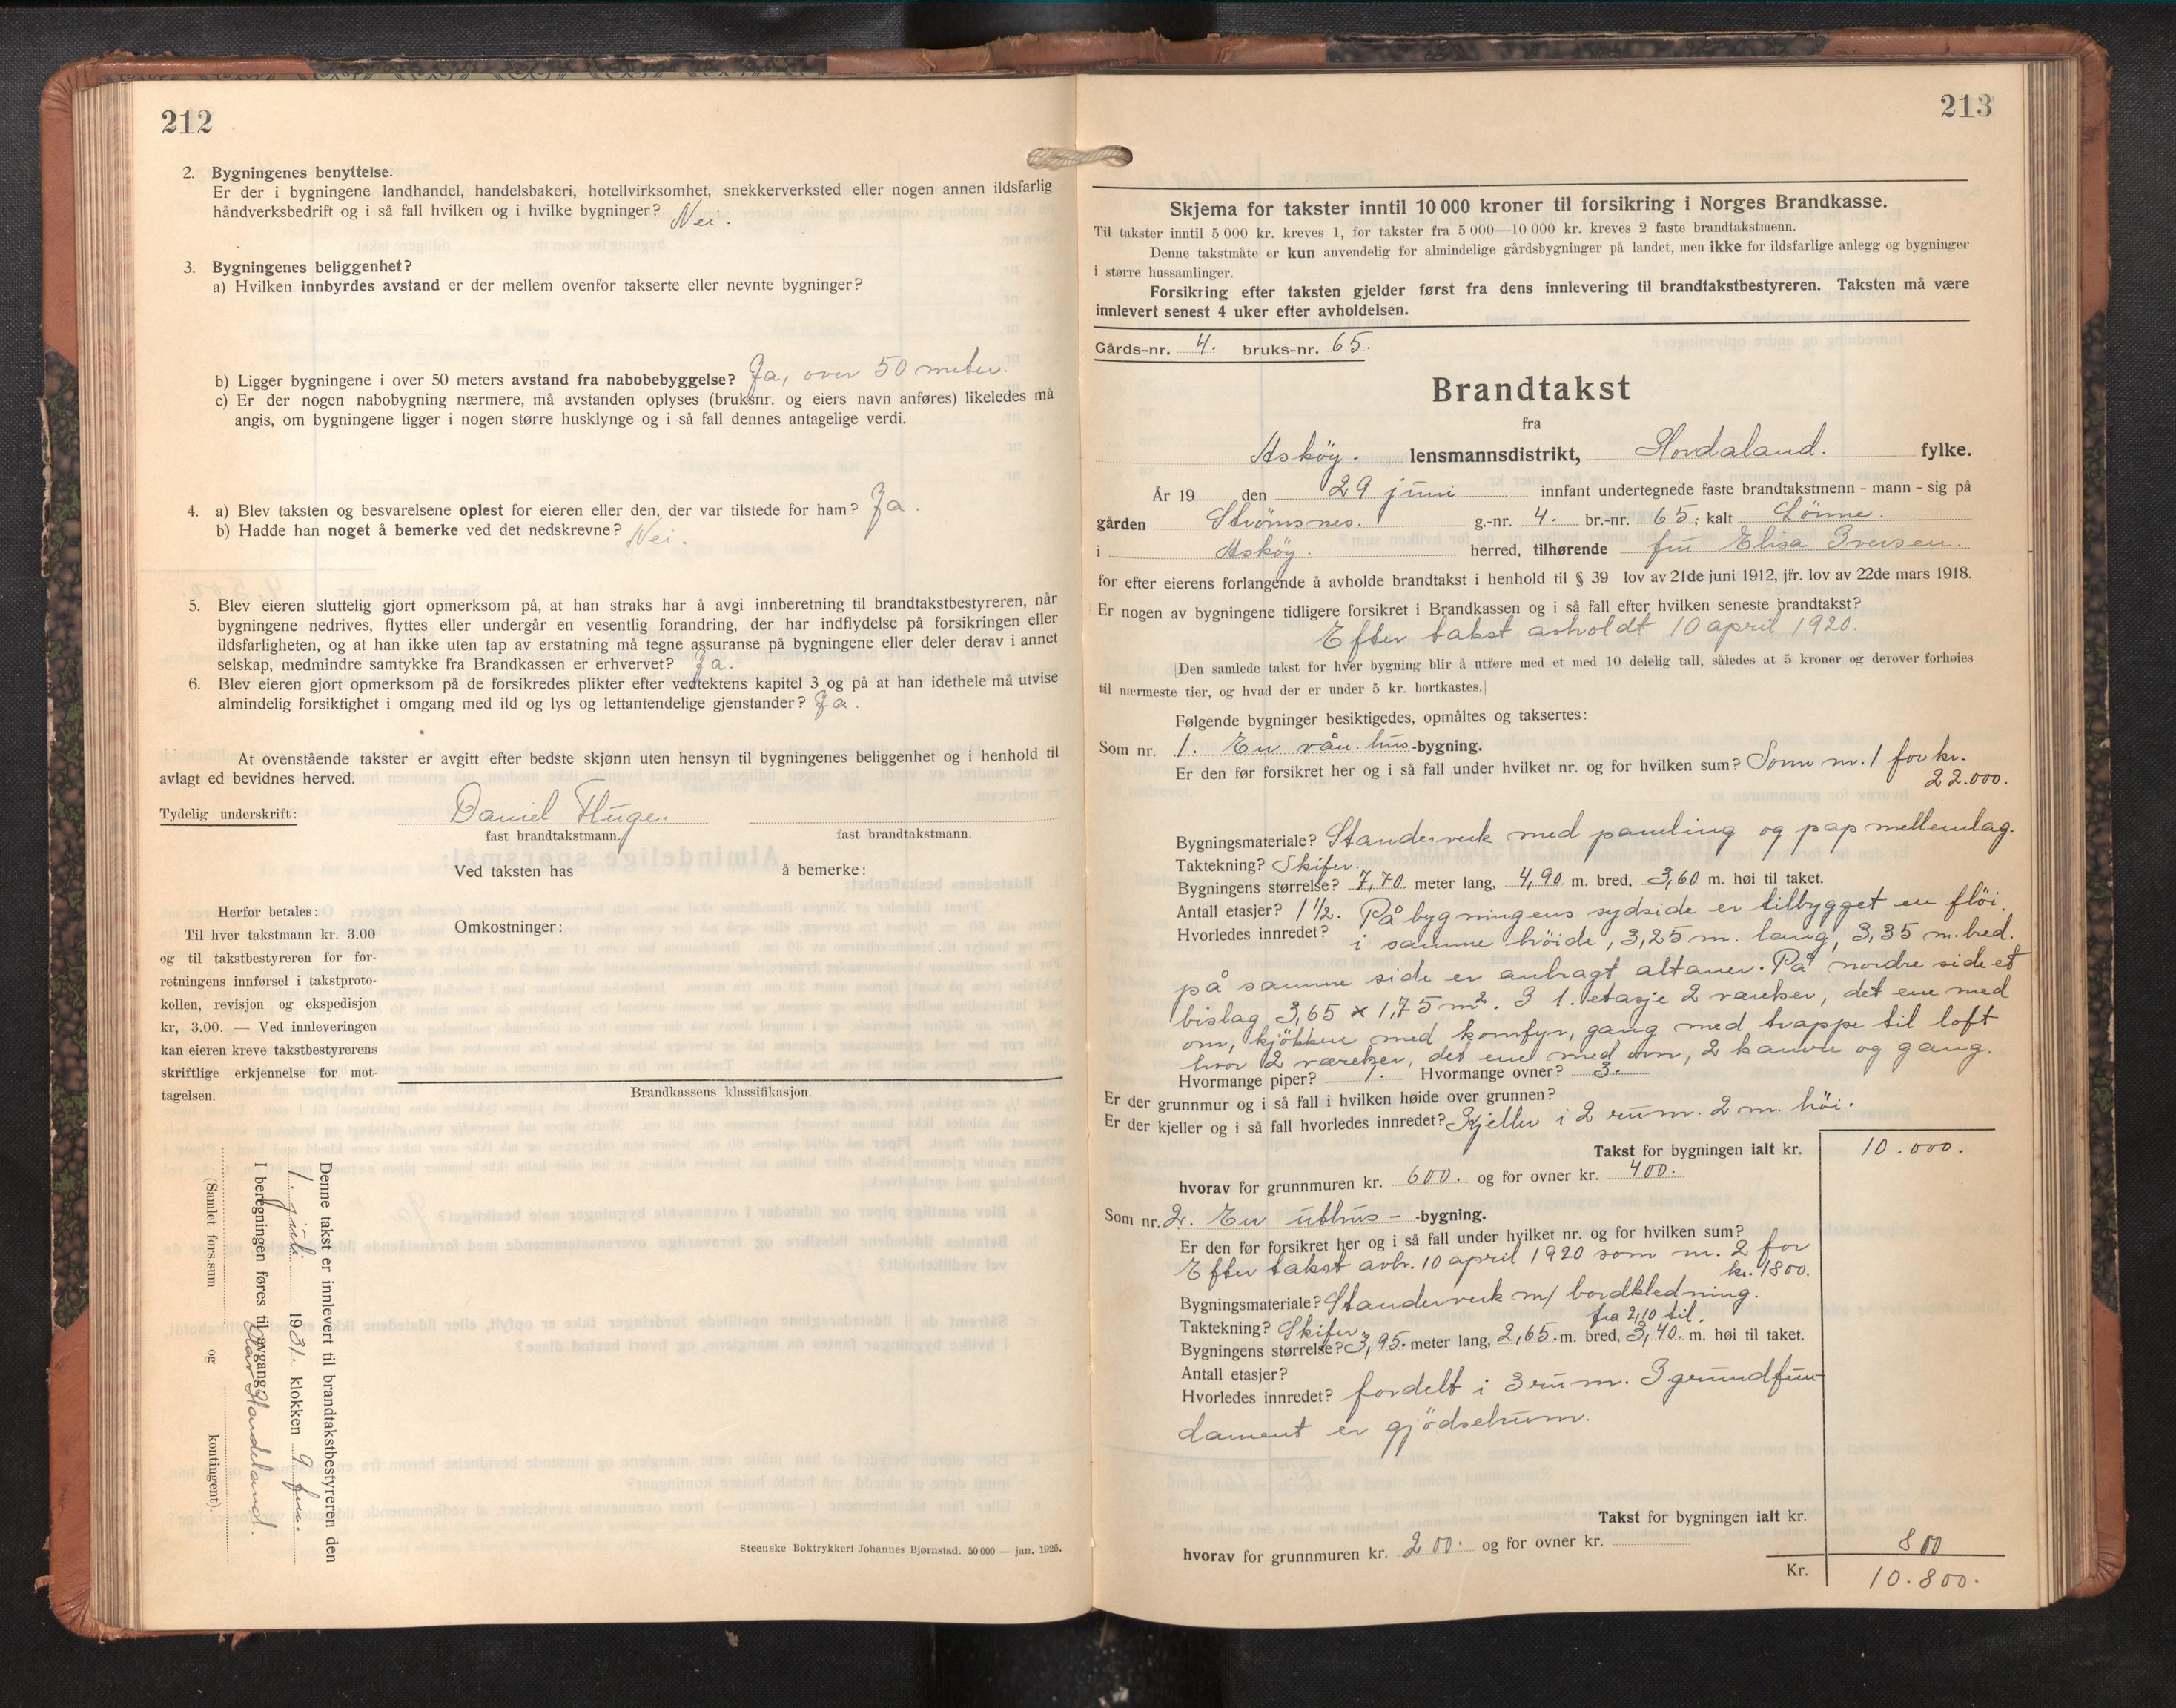 212
2. Bygningenes benyttelse.
Er der i bygningene landhandel, handelsbakeri, hotellvirksomhet, snekkerverksted eller nogen annen ildsfarlig
håndverksbedrift og i så fall hvilken og i hvilke bygninger? Nei.
3. Bygningenes beliggenhet?
a) Hvilken innbyrdes avstand er der mellem ovenfor takserte eller nevnte bygninger?
b) Ligger bygningene i over 50 meters avstand fra nabobebyggelse? Ja, over 50 meter.
c) Er der nogen nabobygning nærmere, må avstanden oplyses (bruksnr. og eiers navn anføres) likeledes må
angis, om bygningene ligger i nogen større husklynge og i så fall dennes antagelige verdi.
4. a) Blev taksten og besvarelsene oplest for eieren eller den, der var tilstede for ham? Ja.
b) Hadde han noget å bemerke ved det nedskrevne? Nei.
5. Blev eieren sluttelig gjort opmerksom på, at han straks har å avgi innberetning til brandtakstbestyreren, når
bygningene nedrives, flyttes eller undergår en vesentlig forandring, der har indflydelse på forsikringen eller
ildsfarligheten, og at han ikke uten tap av erstatning må tegne assuranse på bygningene eller deler derav i annet
selskap, medmindre samtykke fra Brandkassen er erhvervet? Ja.
6. Blev eieren gjort opmerksom på de forsikredes plikter efter vedtektens kapitel 3 og på at han idethele må utvise
almindelig forsiktighet i omgang med ild og lys og lettantendelige gjenstander? Ja.
At ovenstående takster er avgitt efter bedste skjønn uten hensyn til bygningenes beliggenhet og i henhold til
avlagt ed bevidnes herved.
Tydelig underskrift: Daniel Fluge.
fast brandtakstmann. fast brandtakstmann.
Ved taksten has å bemerke:
Herfor betales:
Til hver takstmann kr. 3.00
og til takstbestyreren for for-
retningens innførsel i takstproto-
kollen, revisjon og ekspedisjon
kr, 3.00. — Ved innleveringen
kan eieren kreve takstbestyrerens
skriftlige erkjennelse for mot-
tagelsen.
Omkostninger:
Brandkassens klassifikasjon.
Denne takst er innlevert til brandtakstbestyreren den
1. juli 1931. klokken 9 fm.
I beregningen føres til avgang
Handeland.
(Samlet fors.sum og kontingent).
Steenske Boktrykkeri Johannes Bjørnstad. 50 000 — jan. 1925.
213
Skjema for takster inntil 10 000 kroner til forsikring i Norges Brandkasse.
Til takster inntil 5 000 kr. kreves 1, for takster fra 5 000—10 000 kr. kreves 2 faste brandtakstmenn.
Denne takstmåte er kun anvendelig for almindelige gårdsbygninger på landet, men ikke for ildsfarlige anlegg og bygninger
i større hussamlinger.
Forsikring efter taksten gjelder først fra dens innlevering til brandtakstbestyreren. Taksten må være
innlevert senest 4 uker efter avholdelsen.
Gårds-nr. 4. bruks-nr. 65.
Brandtakst
fra
Asköy. lensmannsdistrikt, Hordaland. fylke.
År 19 den 29 juni innfant undertegnede faste brandtakstmenn - mann - sig på
gården Strömsnes. g.-nr. 4. br.-nr. 65, kalt Lönne.
i Asköy. herred, tilhørende fru Elisa Iversen.
for efter eierens forlangende å avholde brandtakst i henhold til § 39 lov av 21de juni 1912, jfr. lov av 22de mars 1918.
Er nogen av bygningene tidligere forsikret i Brandkassen og i så fall efter hvilken seneste brandtakst?
Efter takst avholdt 10 april 1920.
[Den samlede takst for hver bygning blir å utføre med et med 10 delelig tall, således at 5 kroner og derover forhøies
til nærmeste tier, og hvad der er under 5 kr. bortkastes.]
Følgende bygninger besiktigedes, opmåltes og taksertes:
Som nr. 1. En vån.hus-bygning.
Er den før forsikret her og i så fall under hvilket nr. og for hvilken sum? Som nr. 1 for kr.
22.000.
Bygningsmateriale? Standerverk med paneling og pap mellemlag.
Taktekning? Skifer.
Bygningens størrelse? 7,70. meter lang, 4,90 m. bred, 3,60 m. høi til taket.
Antall etasjer? 1 1/2. På bygningens sydside er tilbygget en flöi.
Hvorledes innredet? i samme höide, 3,25 m. lang, 3,35 m. bred.
på samme side er anbragt altaner. På nordre side et
bislag 3,65 x 1,75 m². I 1. etasje 2 værelser, det ene med
ovn, kjökken med komfyr, gang med trappe til loft
hvor 2 værelser, det ene med ovn, 2 kamre og gang.
Hvormange piper? 1. Hvormange ovner? 3.
Er der grunnmur og i så fall i hvilken høide over grunnen?
Er der kjeller og i så fall hvorledes innredet? Kjeller i 2 rum. 2 m. höi.
Takst for bygningen ialt kr. 10.000.
hvorav for grunnmuren kr. 600. og for ovner kr. 400.
Som nr. 2. En uthus- -bygning.
Er den før forsikret her og i så fall under hvilket nr. og for hvilken sum?
Efter takst avh. 10 april 1920 som nr. 2 for
kr. 1800.
Bygningsmateriale? Standerverk m/ bordkledning.
Taktekning? Skifer. fra 2,10 til.
Bygningens størrelse? 3,95. meter lang, 2,65. m. bred, 3,40. m. høi til taket.
Antall etasjer?
Hvorledes innredet? fordelt i 3 rum. I grundfun-
dament er gjödselrum.
Takst for bygningen ialt kr.
hvorav for grunnmuren kr. 200. og for ovner kr. 800
Kr. 10.800.